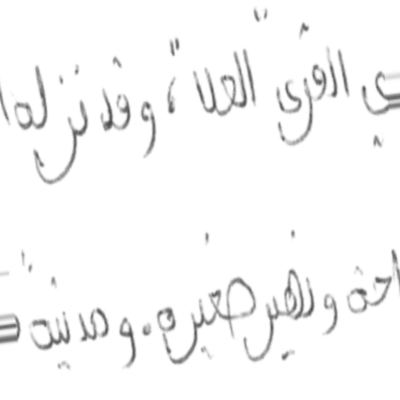 ي القرى "العلا"، وقد نزلها
احة ونهير صغيره. ومدينة